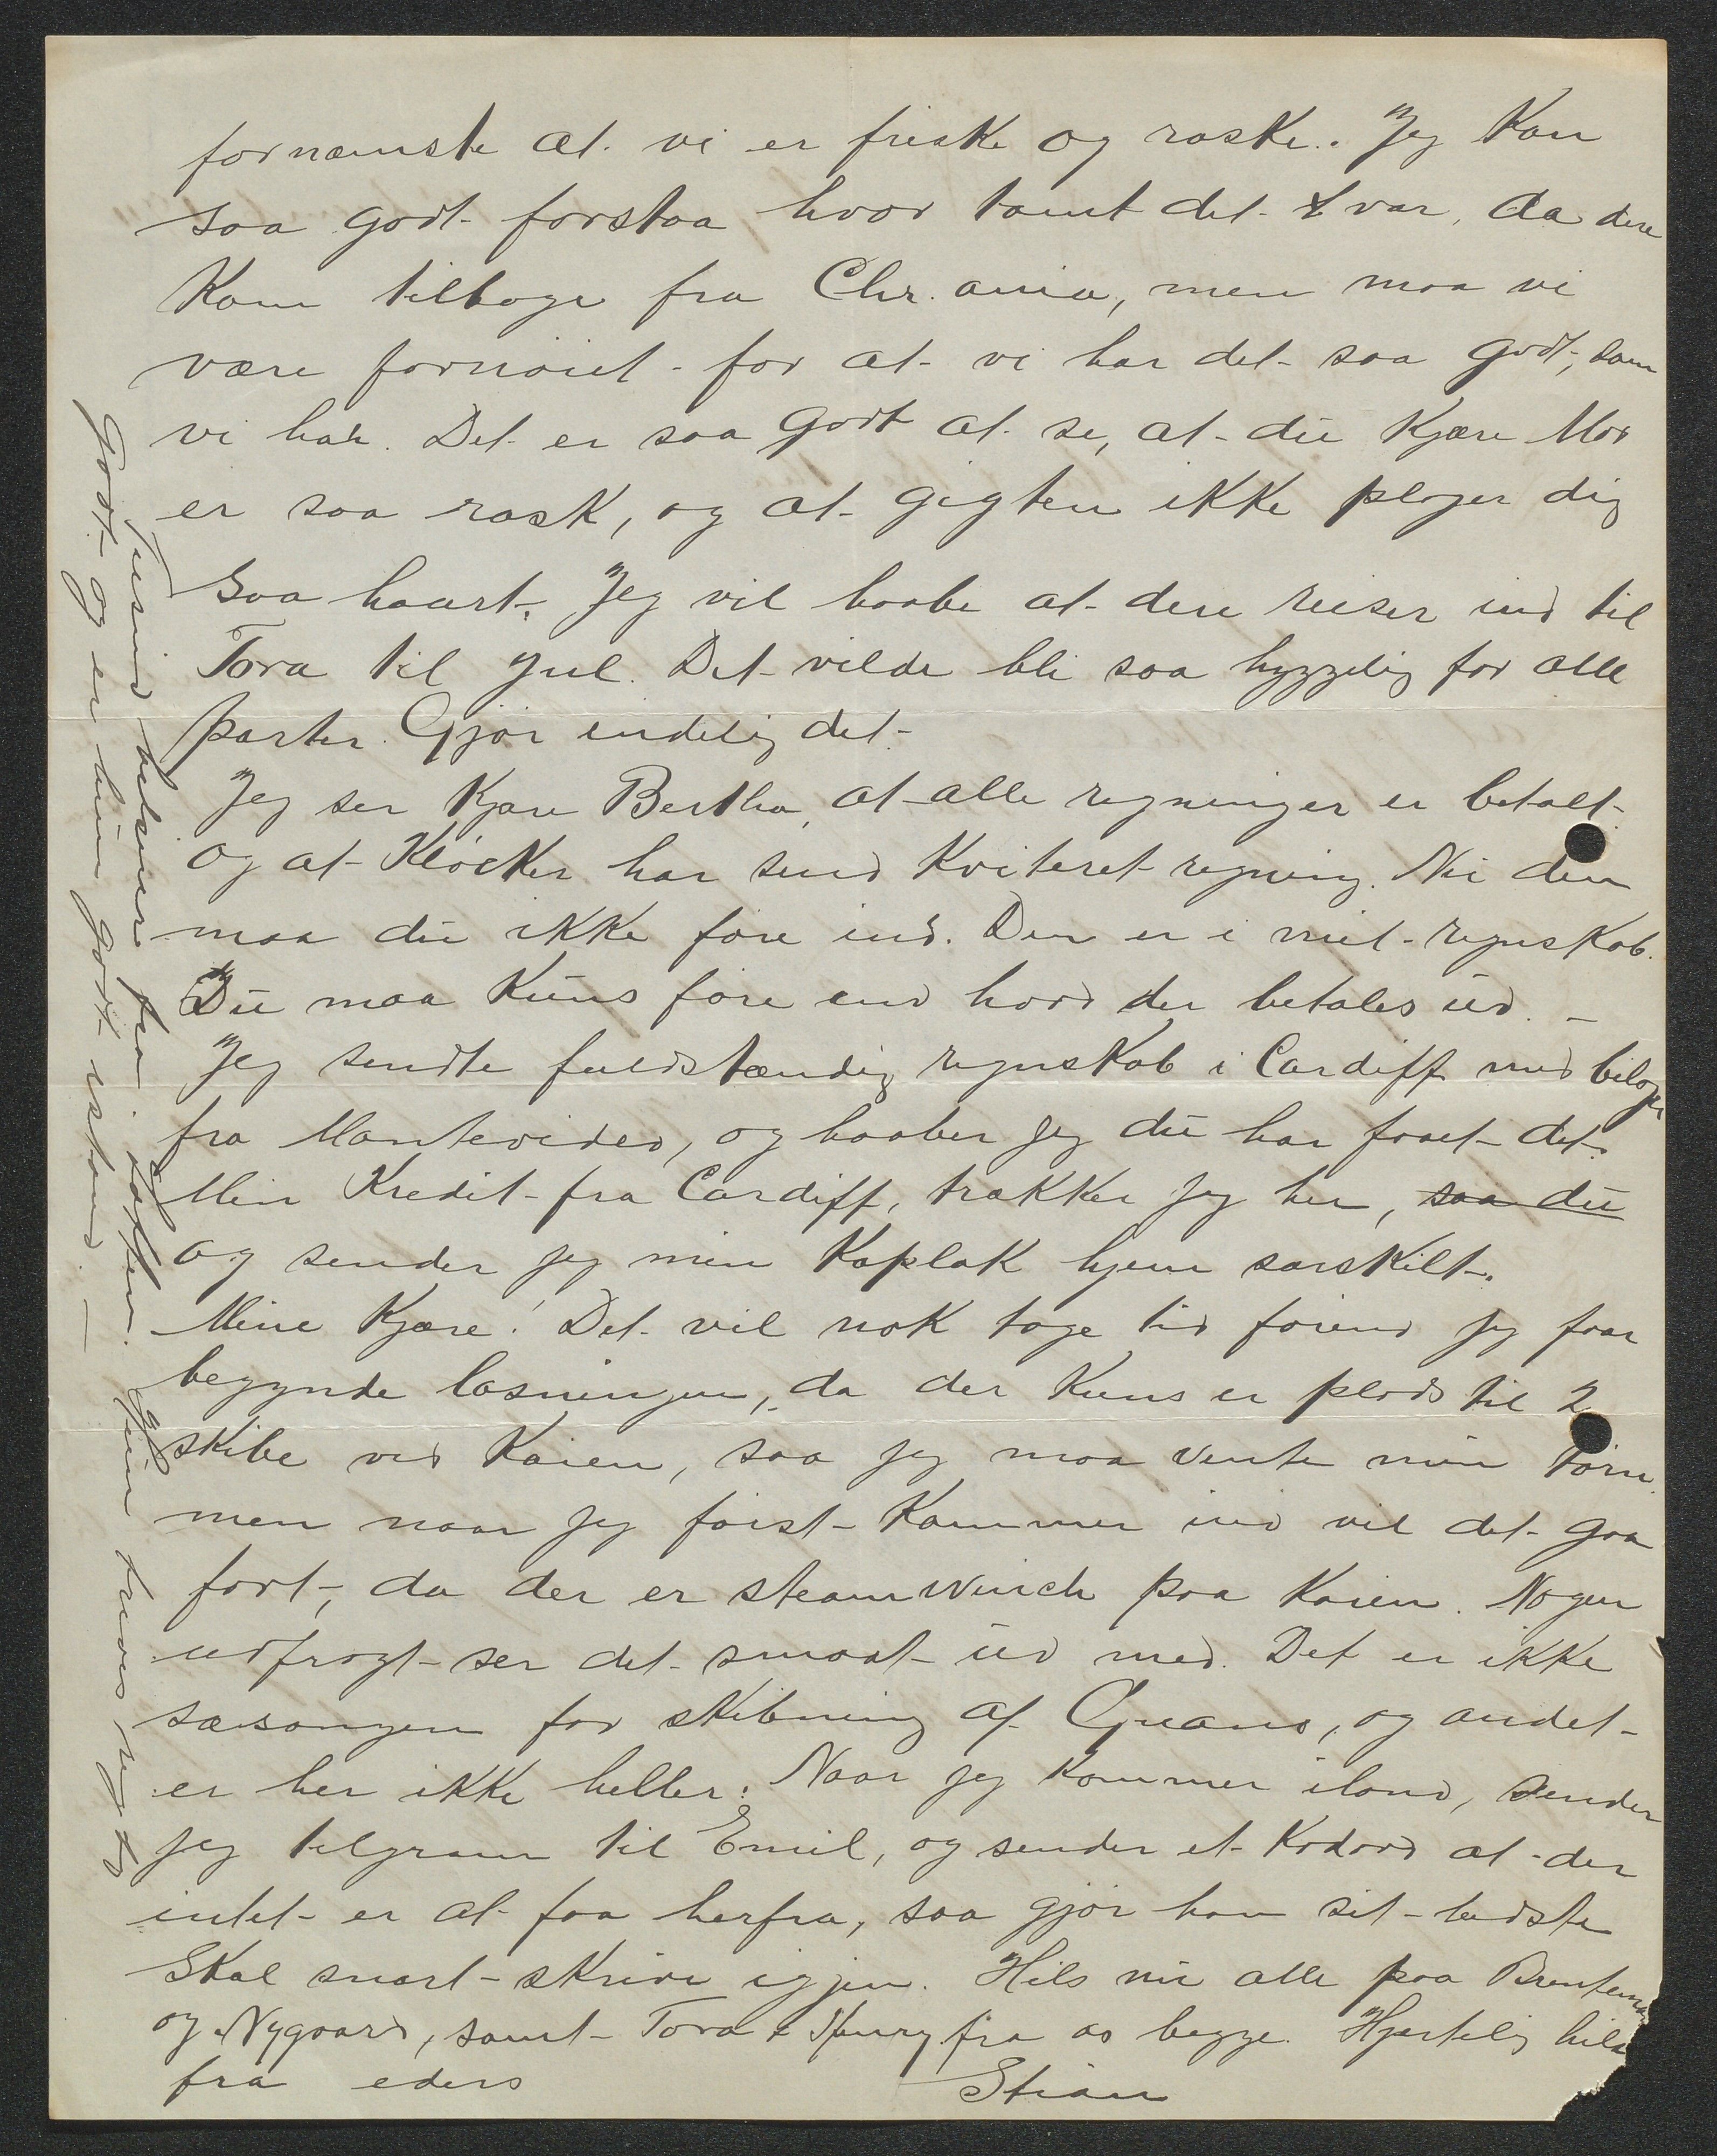 fornæmste at vi er friske og raske. Jeg kan
saa godt forstaa hvor tomt det var, da dere
kom tilbage fra Chr.ania, men maa vi
være fornøiet for at vi har det saa godt, som
vi har. Det er saa godt at se, at du kjære Mor
er saa rask, og at gigten ikke plager dig
saa haart. Jeg vil haabe at dere reiser ind til
Tora til Jul. Det vilde bli saa hyggelig for alle
parter. Gjør endelig det.
Jeg ser kjære Bertha, at alle regninger er betalt
og at Kløcker har send kviteret regning. Nu den
maa du ikke føre ind. Den er i mit regnskab.
Du maa kuns føre ind hvad der betales ud. –
Jeg sendte fuldstændig regnskab i Cardiff med bilager
fra Montevideo, og haaber jeg du har faaet det.
Min Kredit fra Cardiff, trækker jeg her, saa du
og sender jeg min Kaplak hjem særskilt.
Mine Kjære! Det vil nok tage tid førend jeg faar
begynde losningen, da der kuns er plads til 2
skibe ved Kaien, saa jeg maa vente min Tørn
men naar jeg først kommer ind vil det gaa
fort, da der er steamwinch paa Kaien. Nogen
udfragt ser det smaat ud med. Det er ikke
sæsongen for skibning af Guano, og andet
er her ikke heller. Naar jeg kommer iland, sender
jeg telgram til Emil, og sender et Kodord at der
intet er at faa herfra, saa gjør han sit bedste
Skal snart skrive igjen. Hils nu alle paa
og Nygaard, samt Tora & Henry fra os begge. Hjertelig hilsen
fra eders Stian
Tusind hilsener fra
godt og er hun godt istand. –